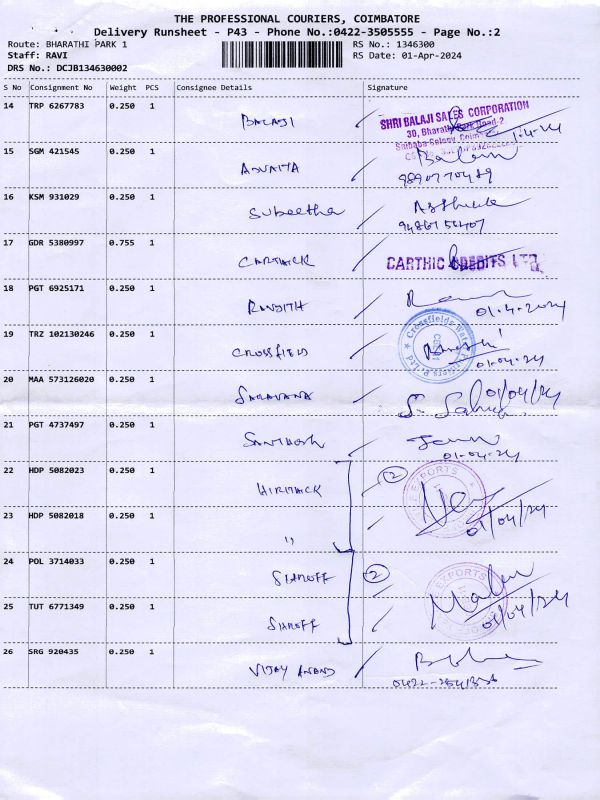 THE PROFESSIONAL COURIERS, COIMBATORE
Delivery Runsheet - P43 - Phone No.:0422-3505555 - Page No.:2
Route: BHARATHI PARK 1 RS No.: 1346300
Staff: RAVI RS Date: 01-Apr-2024
DRS No.: DCJB134630002
S No Consignment No Weight PCS Consignee Details Signature
14 TRP 6267783 0.250 1 BALAJI
SHRI BALAJI SALES CORPORATION
30, Bharathi Park Road-2
Saibaba Colony, 
1.4.24
15 SGM 421545 0.250 1
16 KSM 931029 0.250 1 Subeetha
17 GDR 5380997 0.755 1 CARTHICK CARTHIC CREDITS LTD.
18 PGT 6925171 0.250 1 RANJITH 01.4.2024
19 TRZ 102130246 0.250 1 CROSSFIELD Crossfields Water Purifiers P. Ltd
01.04.24
20 MAA 573126020 0.250 1 SARAVANA 01/04/24
21 PGT 4737497 0.250 1 SANTHOSH
01.04.24
22 HDP 5082023 0.250 1 2 EXPORTS
23 HDP 5082018 0.250 1 " 01/04/24
24 POL 3714033 0.250 1 2 EXPORTS
25 TUT 6771349 0.250 1 01/04/24
26 SRG 920435 0.250 1 VIJAY ANAND